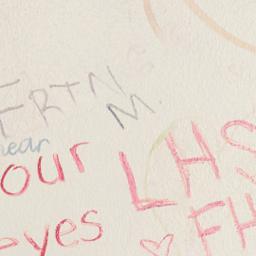 FRTN
M.
our
eyes
LHS
FH